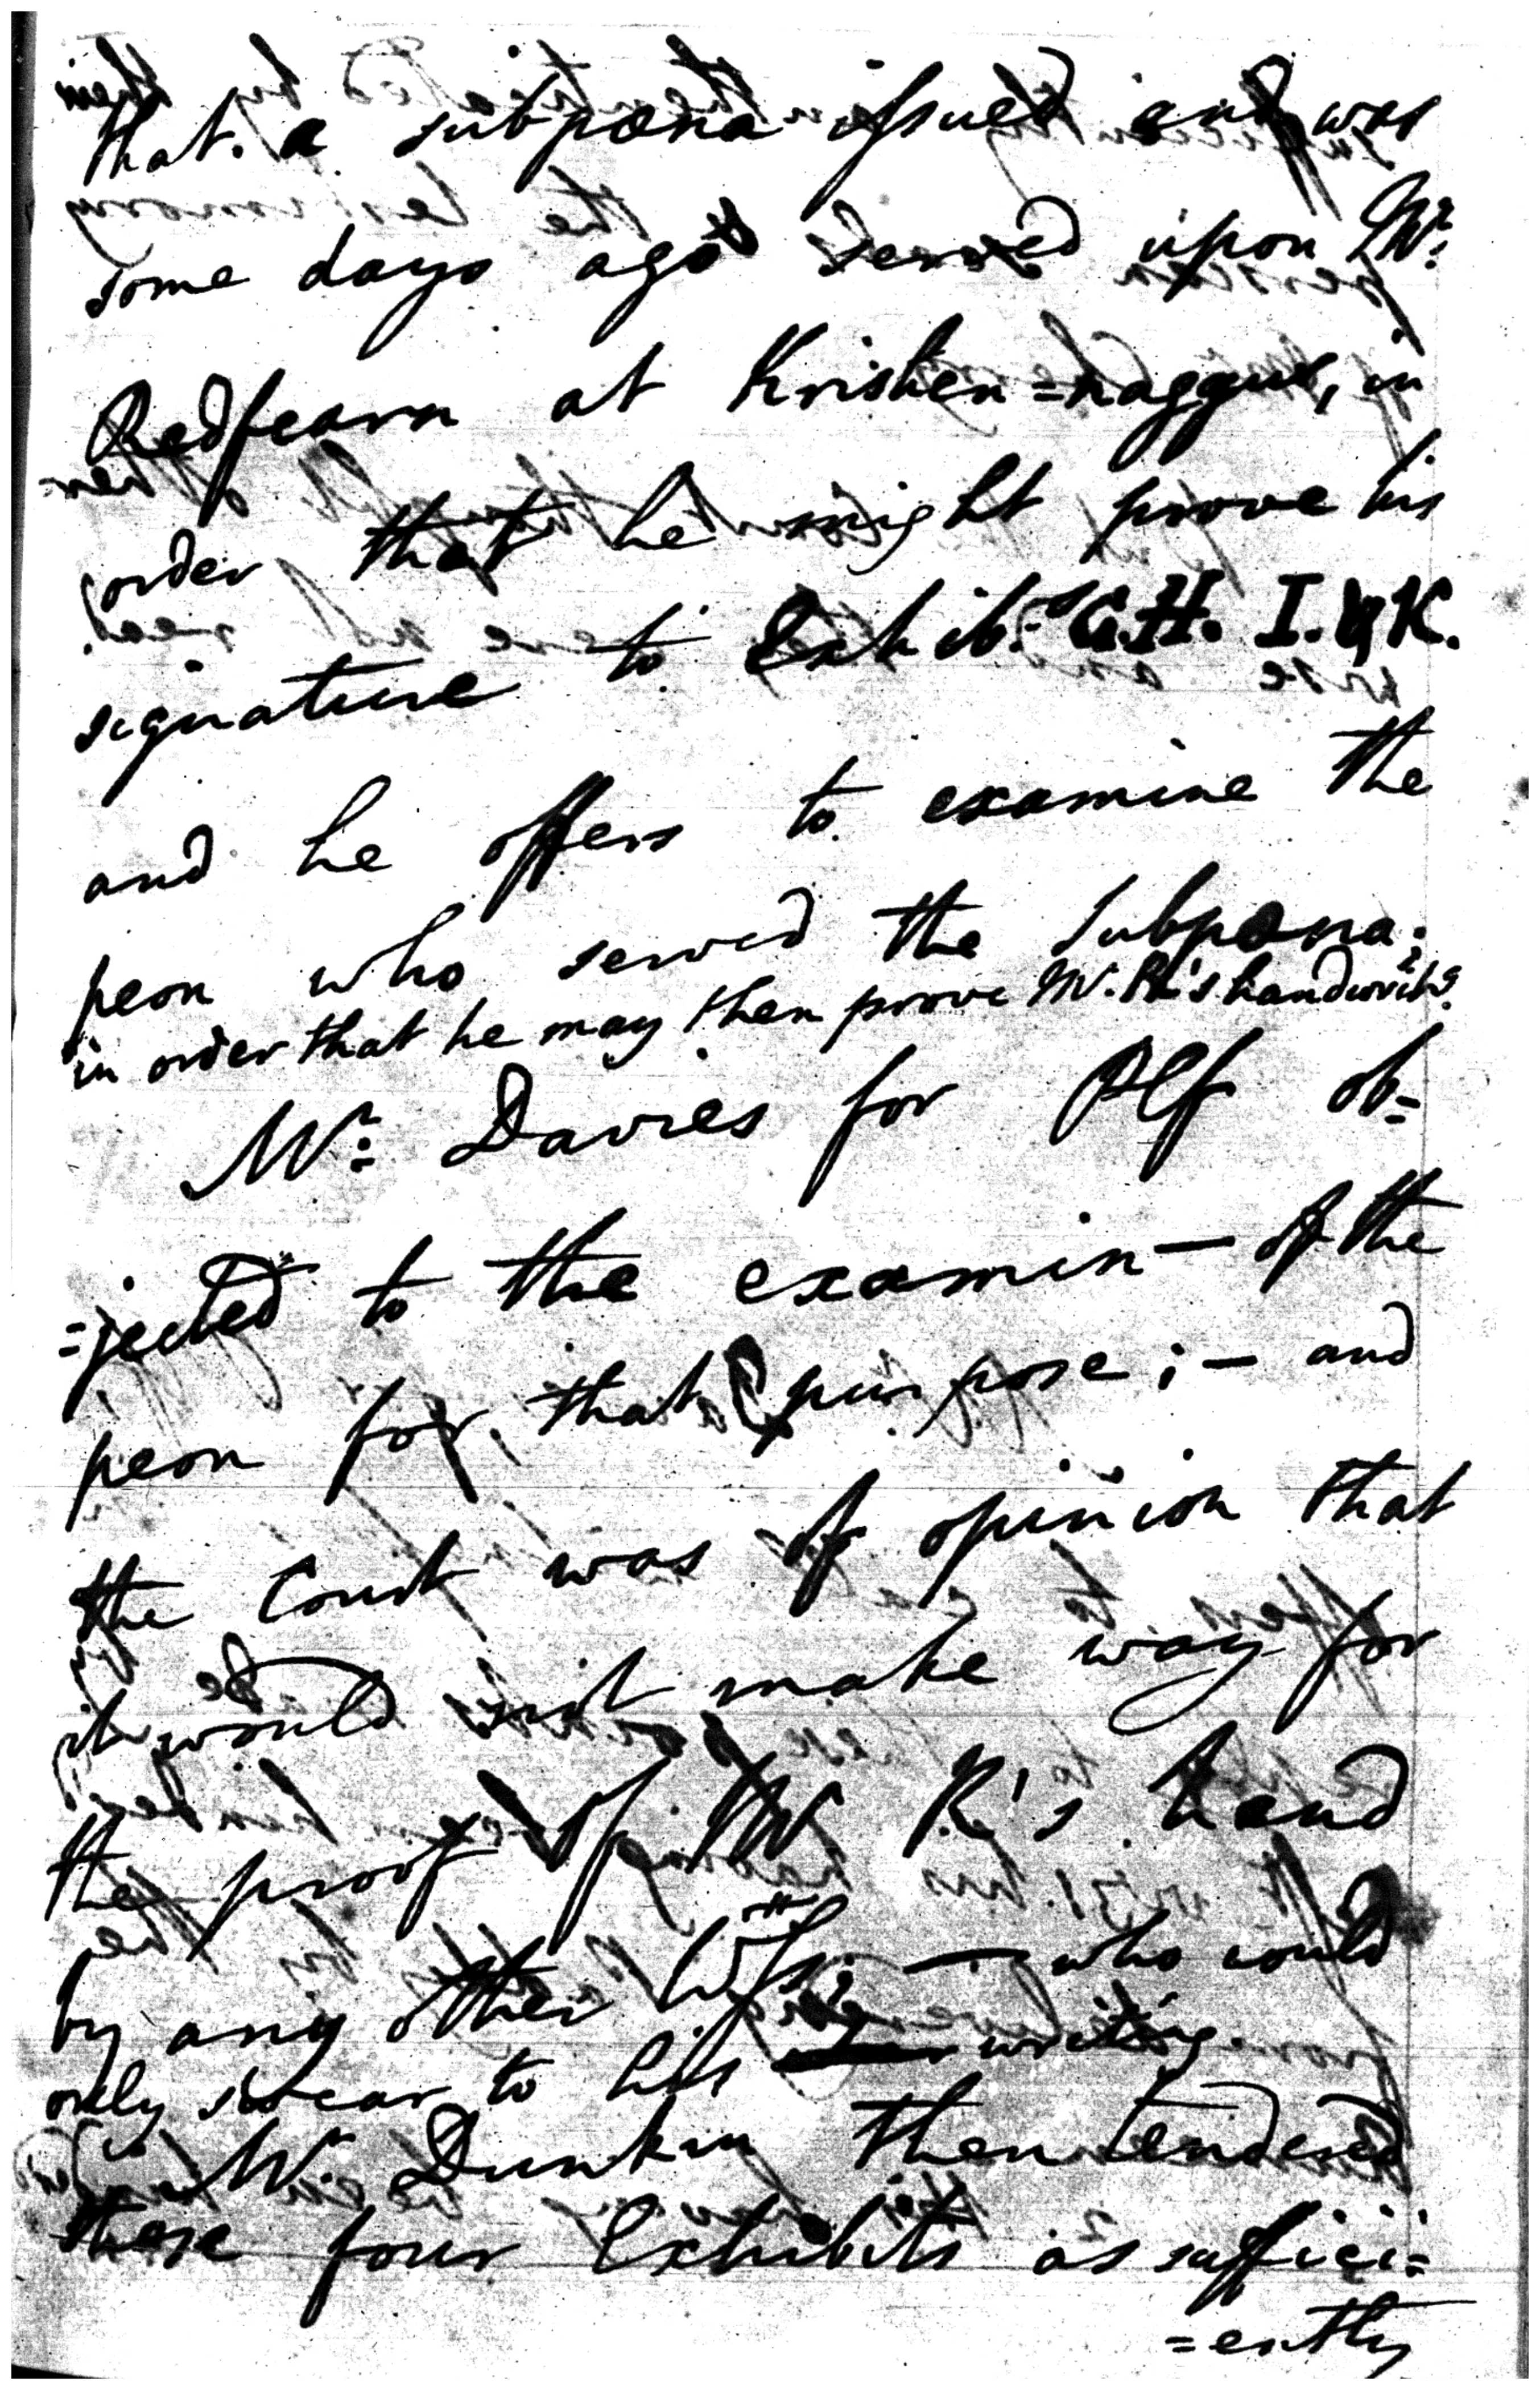 that a subpœna issued and was
some days ago served upon Mr.
Redfearn at Krishen=naggur, in
order that he might prove his
signature to Exhib.ts G. H. I. & K.
and he offers to examine the
peon who served the Subpœna;
in order that he may then prove Mr. R's handwritg.
Mr. Davies for Plf ob=
=jected to the examin— of the
peon for that purpose; — and
the Court was of opinion that
it would not make way for
the proof of Mr R's hand
by any other Witss; — who could
only swear to his writing.
Mr. Dunkin then tendered
these four Exhibits as suffici=
=ently